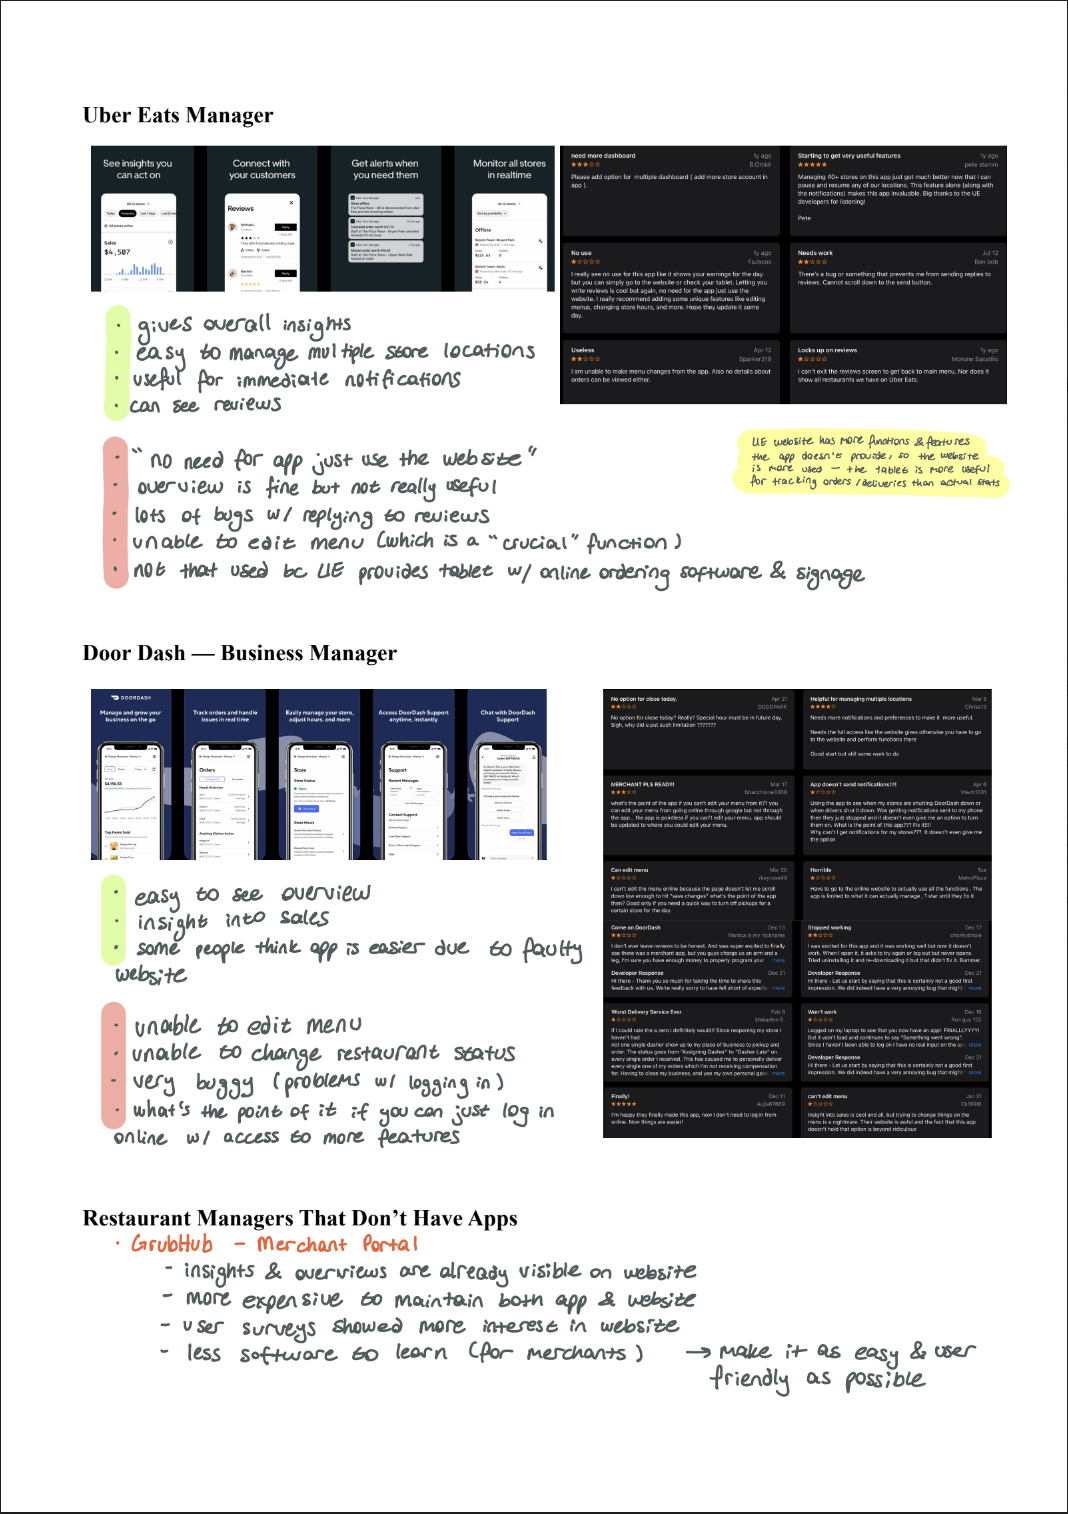 Uber Eats Manager
See insights you
can act on
Connect with
your customers
Get alerts when
you need them
Monitor all stores
in realtime
Sales
$4,507
Reviews
Offline
need more dashboard 1y ago
B.Omidi
Please add option for multiple dashboard ( add more store account in
app ).
Starting to get very useful features 1y ago
pete stamm
Managing 40+ stores on this app just got much better now that I can
pause and resume any of our locations. This feature alone (along with
the notifications) makes this app invaluable. Big thanks to the UE
developers for listening!
Pete
No use 1y ago
I really see no use for this app like it shows your earnings for the day
but you can simply go to the website or check your tablet. Letting you
write reviews is cool but again, no need for the app just use the
website. I really recommend adding some unique features like editing
menus, changing store hours, and more. Hope they update it some
day.
Needs work Jul 12
Bon bob
There's a bug or something that prevents me from sending replies to
reviews. Cannot scroll down to the send button.
Useless Apr 12
Sparker319
I am unable to make menu changes from the app. Also no details about
orders can be viewed either.
Locks up on reviews 1y ago
Morone Saxatilis
I can't exit the reviews screen to get back to main menu. Nor does it
show all restaurants we have on Uber Eats.
• gives overall insights
• easy to manage multiple store locations
• useful for immediate notifications
• can see reviews
• "no need for app just use the website"
• overview is fine but not really useful
• lots of bugs w/ replying to reviews
• unable to edit menu (which is a "crucial" function)
• not that used bc UE provides tablet w/ online ordering software & signage
UE website has more functions & features
the app doesn't provide, so the website
is more used — the tablet is more useful
for tracking orders/deliveries than actual stats
Door Dash — Business Manager
DOORDASH
Manage and grow your
business on the go
Track orders and handle
issues in real time
Easily manage your store,
adjust hours, and more
Access DoorDash Support
anytime, instantly
Chat with DoorDash
Support
Orders
Store
Support
No option for close today. Apr 21
DOODPARK
No option for close today? Really? Special hour must be in future day.
Sigh, why did u put such limitation ???????
Helpful for managing multiple locations Mar 5
Chrise13
Needs more notifications and preferences to make it more useful.
Needs the full access like the website gives otherwise you have to go
to the website and perform functions there
Good start but still some work to do
MERCHANT PLS READ!!!! Mar 17
what's the point of the app if you can't edit your menu from it?? you
can edit your menu from going online through google but not through
the app... the app is pointless if you can't edit your menu. app should
be updated to where you could edit your menu.
App doesn't send notifications!!!! Apr 6
Using the app to see when my stores are shutting DoorDash down or
when drivers shut it down. Was getting notifications sent to my phone
then they just stopped and it doesn't even give me an option to turn
them on. What is the point of this app??? Fix it!!!!
Why can't I get notifications for my stores??? It doesn't even give me
the option
Can edit menu Mar 20
rkeyrose49
I can't edit the menu online because the page doesn't let me scroll
down low enough to hit "save changes" what's the point of the app
then? Good only if you need a quick way to turn off pickups for a
certain store for the day.
Horrible Tue
MetroPlaza
Have to go to the online website to actually use all the functions . The
app is limited to what it can actually manage , 1 star until they fix it
Come on DoorDash Dec 13
Monica is my nickname
I don't ever leave reviews to be honest. And was super excited to finally
see there was a merchant app, but you guys charge us an arm and a
leg, I'm sure you have enough money to properly program your more
Developer Response Dec 21
Hi there - Thank you so much for taking the time to share this
feedback with us. We're really sorry to have fell short of expec more
Stopped working Dec 17
I was excited for this app and it was working well but now it doesn't
work. When I open it, it asks to try again or log out but never opens.
Tried uninstalling it and re-downloading it but that didn't fix it. Bummer.
Developer Response Dec 21
Hi there - Let us start by saying that this is certainly not a good first
impression. We did indeed have a very annoying bug that might more
Worst Delivery Service Ever Feb 8
Makaelen B.
If I could rate the a zero I definitely would!! Since reopening my store I
haven't had
not one single dasher show up to my place of business to pickup and
order. The status goes from "Assigning Dasher" to "Dasher Late" on
every single order I received. This has caused me to personally deliver
every single one of my orders which I'm not receiving compensation
for. Having to close my business, and use my own personal gas more
Won't work Dec 16
Run guy 152
Logged on my laptop to see that you now have an app! FINALLLYYYY!
But it won't load and continues to say "Something went wrong".
Since I haven't been able to log on I have no real input on the ap more
Developer Response Dec 21
Hi there - Let us start by saying that this is certainly not a good first
impression. We did indeed have a very annoying bug that might more
Finally! Dec 11
I'm happy they finally made this app, now I don't need to log in from
online. Now things are easier!
can't edit menu Jan 31
Insight into sales is cool and all, but trying to change things on the
menu is a nightmare. Their website is awful and the fact that this app
doesn't hold that option is beyond ridiculous
• easy to see overview
• insight into sales
• some people think app is easier due to faulty
website
• unable to edit menu
• unable to change restaurant status
• very buggy (problems w/ logging in)
• what's the point of it if you can just log in
online w/ access to more features
Restaurant Managers That Don't Have Apps
• GrubHub – Merchant Portal
– insights & overviews are already visible on website
– more expensive to maintain both app & website
– user surveys showed more interest in website
– less software to learn (for merchants) → make it as easy & user
friendly as possible